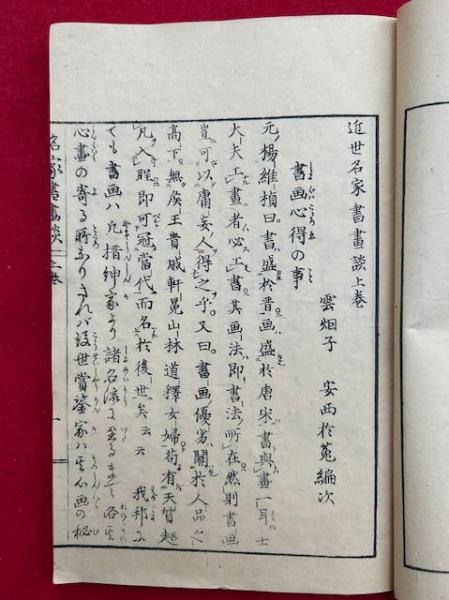 近世名家書畫談上巻
雲烟子 安西於菟編次
書画心得の事
元楊維楨曰書盛於晋画盛於唐宋書與畫一耳士
大夫工畫者必工書其画法即書法所在然則書画
豈可以庸妄人得之乎又曰書画優劣關於人品之
高下無侯王貴戚軒冕山林道釋女婦苟有天質超
凡入聖即可冠當代而名於後世矣云云 我邦に
ても書画ハ 搢紳家より諸名流に至るまで各
心畫の寄る所なりされバ後世賞鑒家ハ其書画の秘
名家書畫談 上巻 一